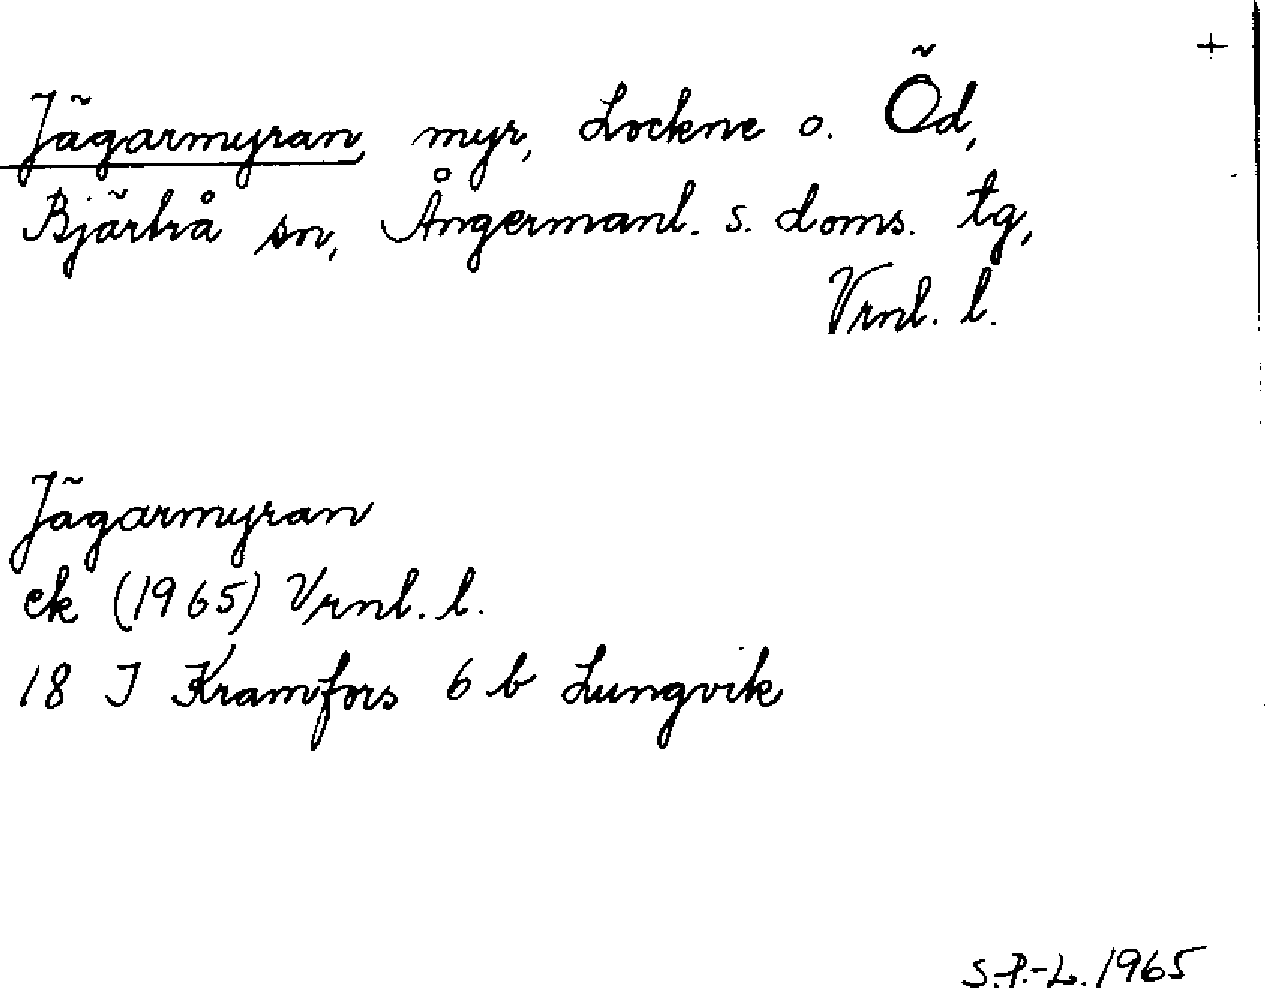 +
Jägarmyran, myr, Lockne o. Öd,
Bjärtrå sn, Ångermanl. s. doms. tg,
Vrnl. l.
Jägarmyran
ek (1965) Vrnl. l.
18 J Kramfors 6 b Lungvik
S.P.-L. 1965